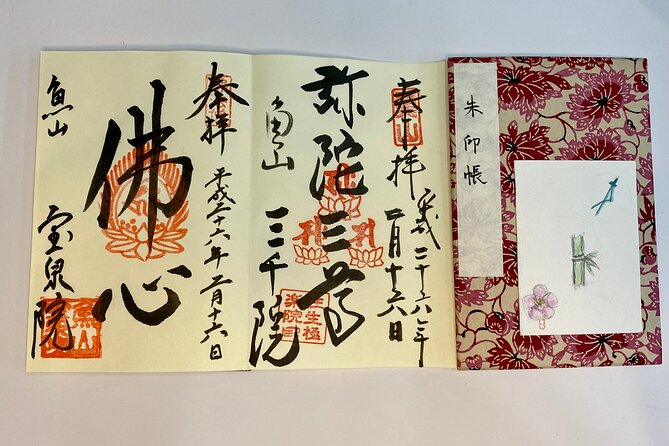 朱印帳
奉拝
平成二十六年
二月十六日
弥陀三尊
魚山
三千院
往生極
楽院印
奉拝
平成二十六年二月十六日
佛心
魚山
宝泉院